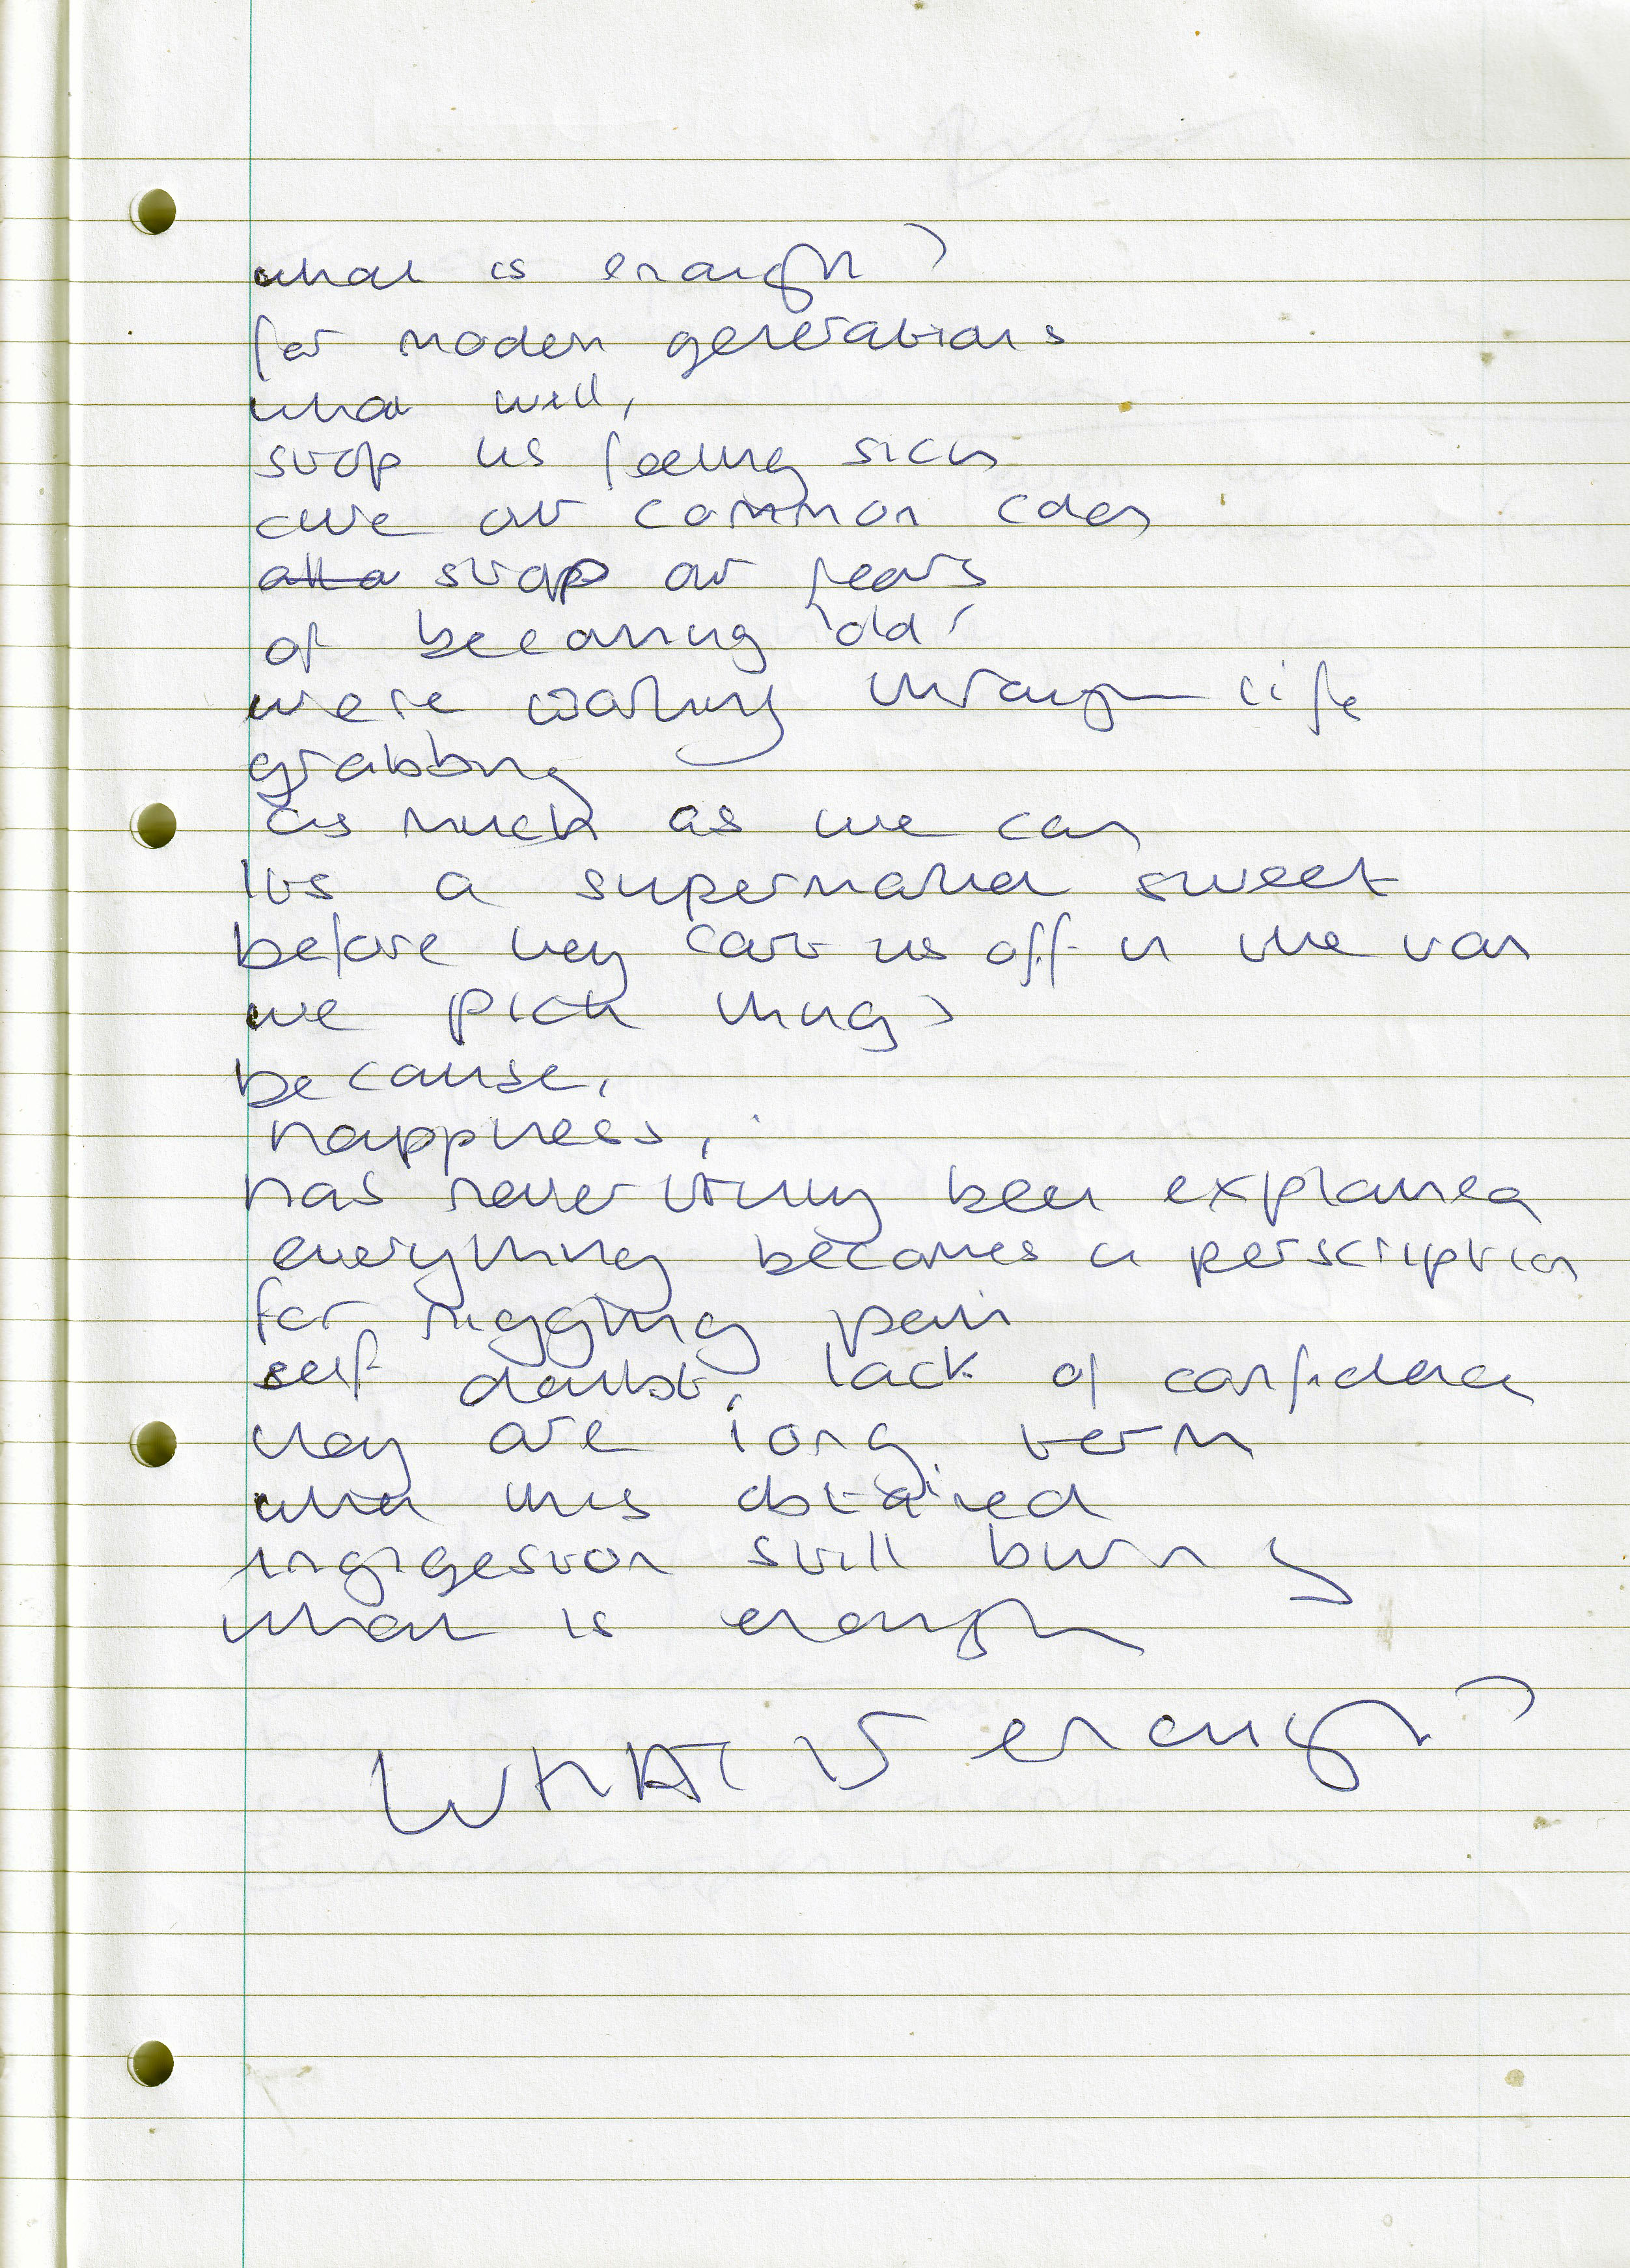 what is enough?
for modern generations
what will,
stop us feeling sick
cure our common colds
stop our fears
of becoming 'old'
we're walking through life
grabbing
as much as we can
its a supermarket sweet
before they cart us off in the van
we pick things
because,
happiness,
has never truly been explained
everything becomes a perscription
for niggling pain
self doubt, lack of confidence
they are long term
when this obtained
ingigestion still burns
what is enough
WHAT IS enough?